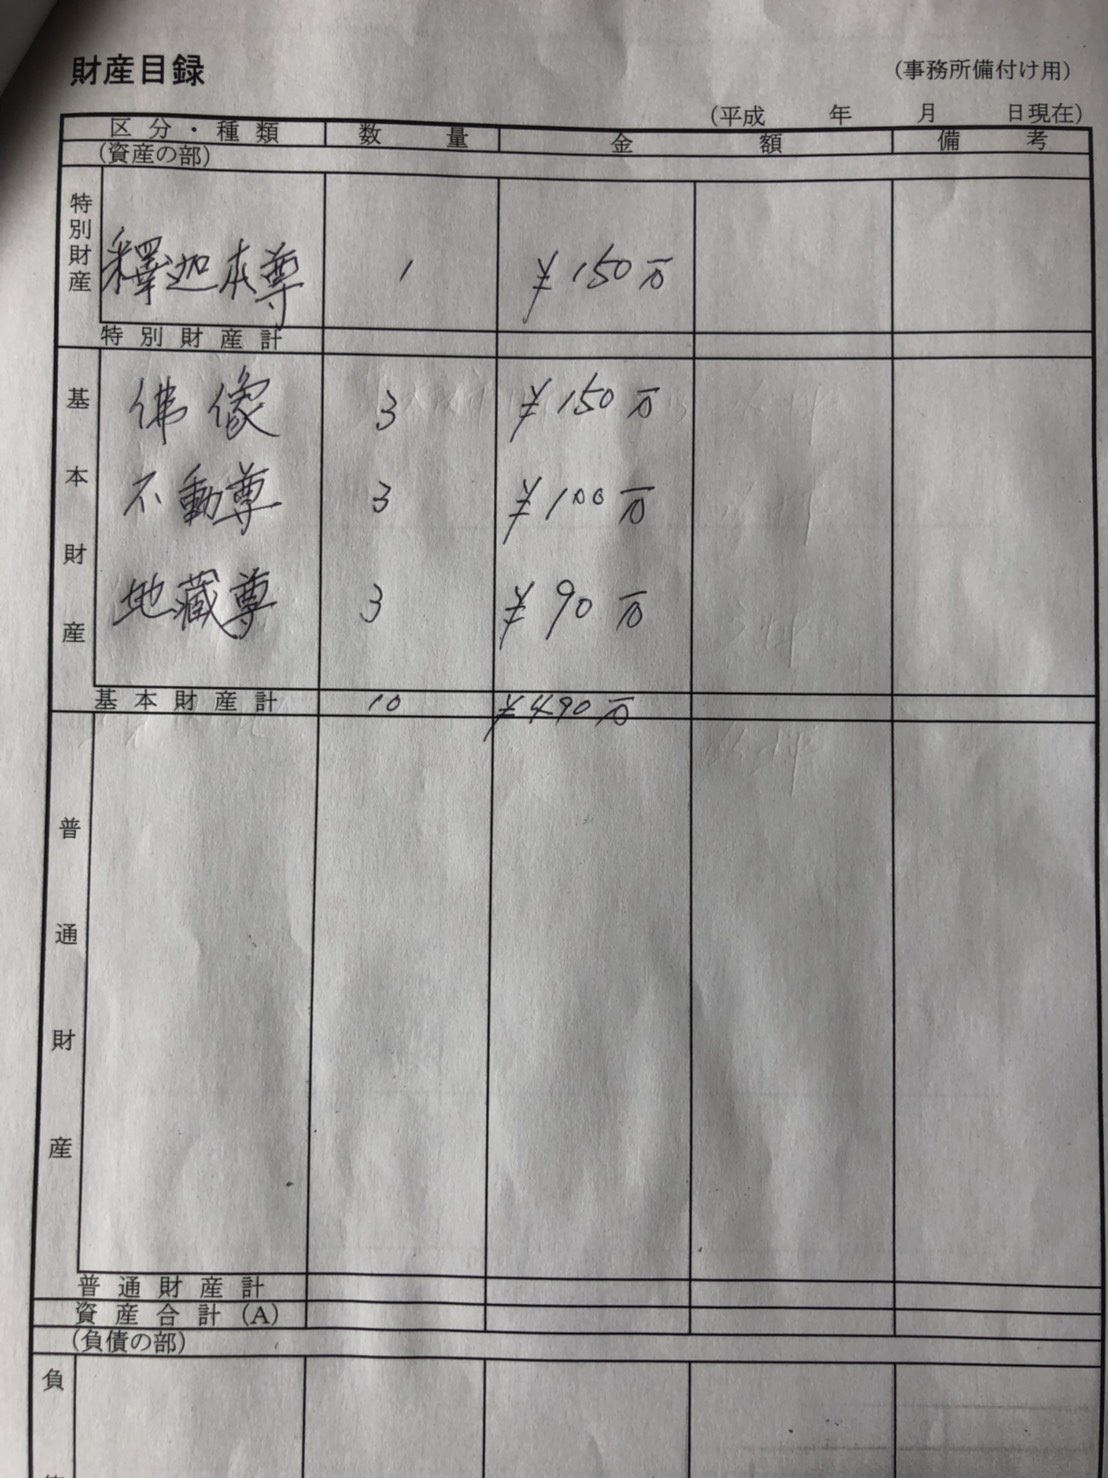 財産目録
(事務所備付け用)
(平成　年　月　日現在)
区分・種類　数量　金額　備考
(資産の部)
特別財産
釋迦本尊　1　¥150万
特別財産計
基本財産
佛像　3　¥150万
不動尊　3　¥100万
地蔵尊　3　¥90万
基本財産計　10　¥490万
普通財産
普通財産計
資産合計(A)
(負債の部)
負